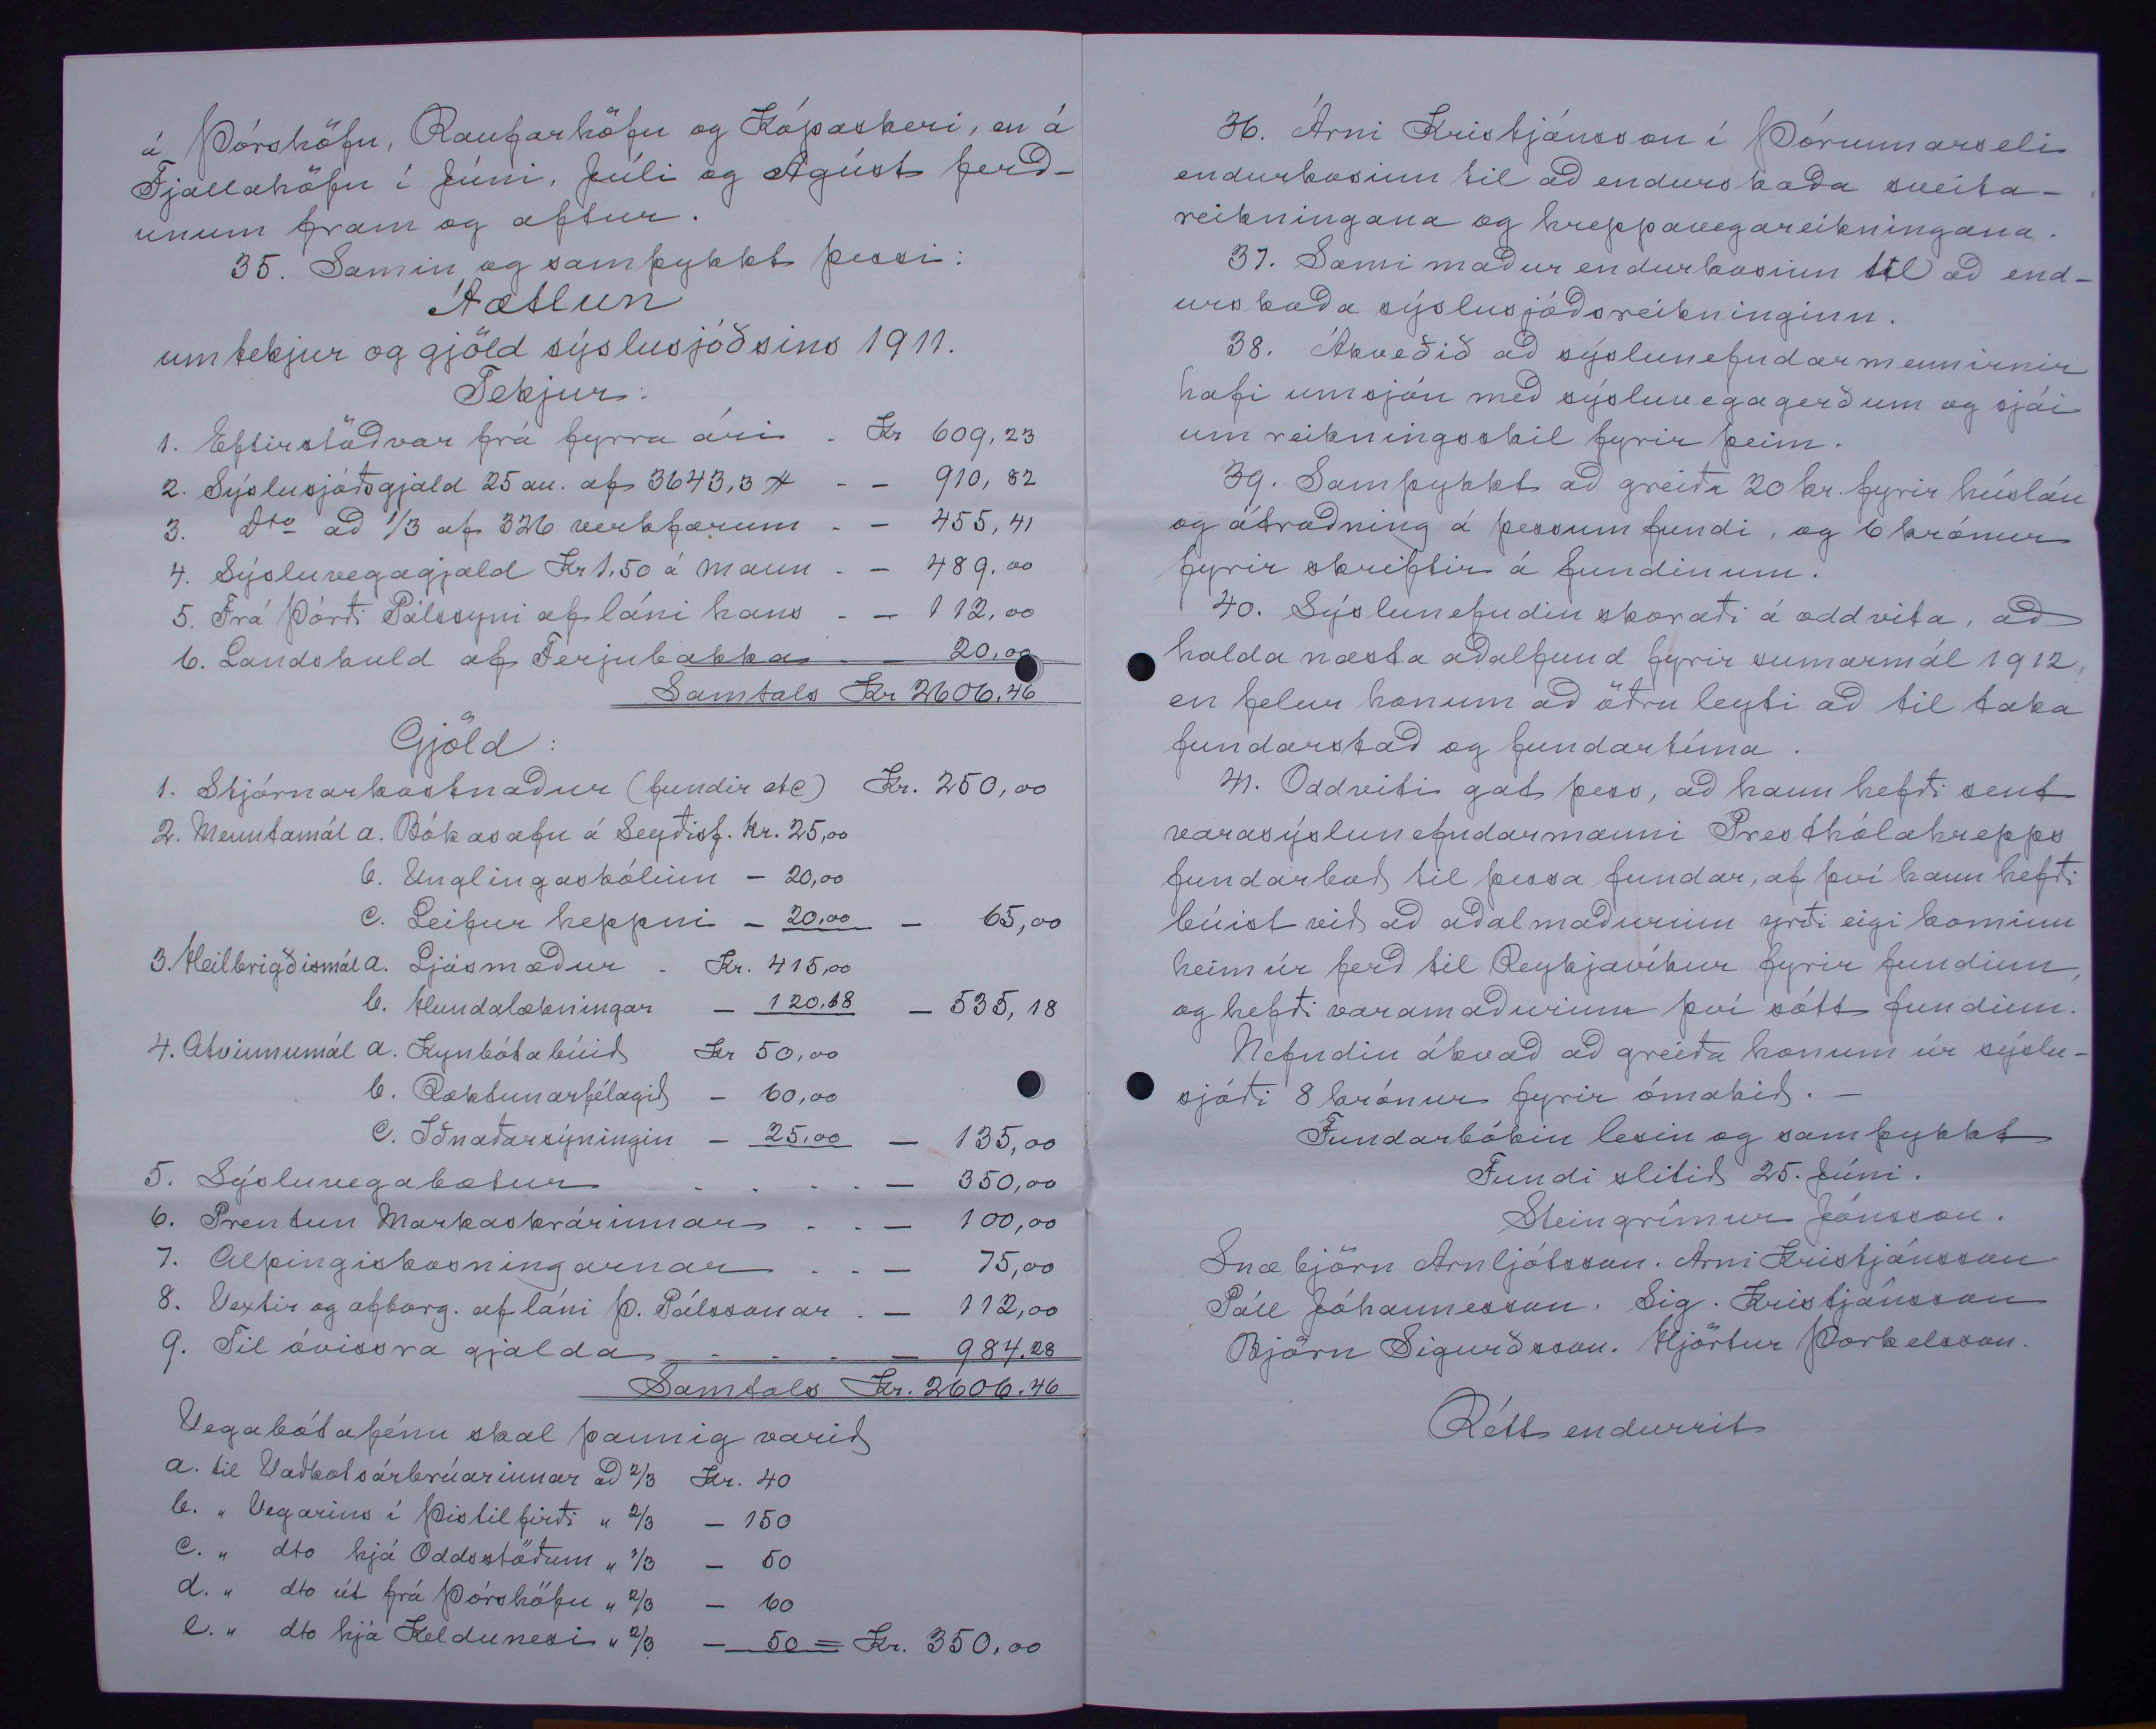 á Þórshöfn, Raufarhöfn og Kópaskeri, en á
Fjallahöfn í Júni, Júli og Agúst ferð-
unum fram og aftur.
35. Samin og samþykkt þessi:
Áætlun
um tekjur og gjöld sýslusjóðsins 1911.
Tekjur:
1. Eftirstöðvar frá fyrra ári - Kr 609,23
2. Sýslusjóðsgjald 25 au. af 3643,3 # - - 910,82
3. Dto að 1/3 af 326 verkfærum - - 455,41
4. Sýsluvegagjald Kr 1,50 á mann - - 489.00
5. Frá Þórði Pálssyni af láni hans - - 112,00
6. Landskuld af Ferjubakka - - 20,00
Samtals Kr 2606,46
Gjöld:
1. Stjórnarkostnaður (fundir etc) Kr. 250,00
2. Menntamál a. Bókasafn á Seyðisf. Kr. 25,00
b. Unglingaskólinn - 20,00
c. Leifur heppni - 20,00 - 65,00
3. Heilbrigðismál a. Ljósmæður - Kr. 415,00
b. Hundalækningar - 120.18 - 535,18
4. Atvinnumál a. Kynbótabúið Kr 50,00
b. Ræktunarfélagið - 60,00
c. Iðnaðarsýningin - 25,00 - 135,00
5. Sýsluvegabætur - - - - - 350,00
6. Prentun Markaskrárinnar - - - 100,00
7. Alþingiskosningarnar - - - 75,00
8. Vextir og afborg. af láni Þ. Pálssonar - - 112,00
9. Til óvissra gjalda - - - - 984.28
Samtals Kr. 2606.46
Vegabótafénu skal þannig varið
a. til Vaðkotsárbrúarinnar að 2/3 Kr. 40
b. " Vegarins í Þistilfirði " 2/3 - 150
c. " dto hjá Oddsstöðum " 2/3 - 50
d. " dto út frá Þórshöfn " 2/3 - 60
e. " dto hjá Keldunesi " 2/3 - 50 = Kr. 350,00
36. Árni Kristjánsson í Þórunnarseli
endurkosinn til að endurskoða sveita-
reikningana og hreppavegareikningana.
37. Sami maður endurkosinn til að end-
urskoða sýslusjóðsreikninginn.
38. Ákveðið að sýslunefndarmennirnir
hafi umsjón með sýsluvegagerðum og sjái
um reikningsskil fyrir þeim.
39. Samþykkt að greiða 20 kr. fyrir húslán
og átroðning á þessum fundi, og 6 krónur
fyrir skriftir á fundinum.
40. Sýslunefndin skoraði á oddvita, að
halda næsta aðalfund fyrir sumarmál 1912,
en felur honum að öðru leyti að til taka
fundarstað og fundartíma.
41. Oddviti gat þess, að hann hefði sent
varasýslunefndarmanni Presthólahrepps
fundarboð til þessa fundar, af því hann hefði
búist við að aðalmaðurinn yrði eigi kominn
heim úr ferð til Reykjavíkur fyrir fundinn,
og hefði varamaðurinn því sótt fundinn.
Nefndin ákvað að greiða honum úr sýslu-
sjóði 8 krónur fyrir ómakið. -
Fundarbókin lesin og samþykkt
Fundi slitið 25. Júni.
Steingrímur Jónsson.
Snæbjörn Arnljótsson. Arni Kristjánsson
Páll Jóhannesson. Sig. Kristjánsson
Björn Sigurðsson. Hjörtur Þorkelsson.
Rétt endurrit